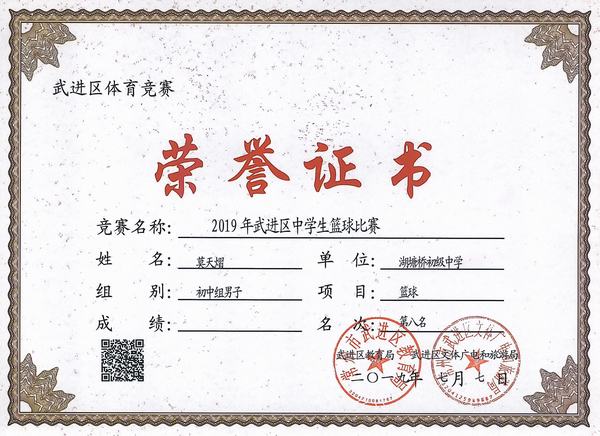 武进区体育竞赛
荣誉证书
竞赛名称: 2019年武进区中学生篮球比赛
姓 名: 莫天熠 单 位: 湖塘桥初级中学
组 别: 初中组男子 项 目: 篮球
成 绩: 名 次: 第八名
武进区教育局 武进区文体广电和旅游局
二〇一九年 七月 七日
常州市武进区教育局